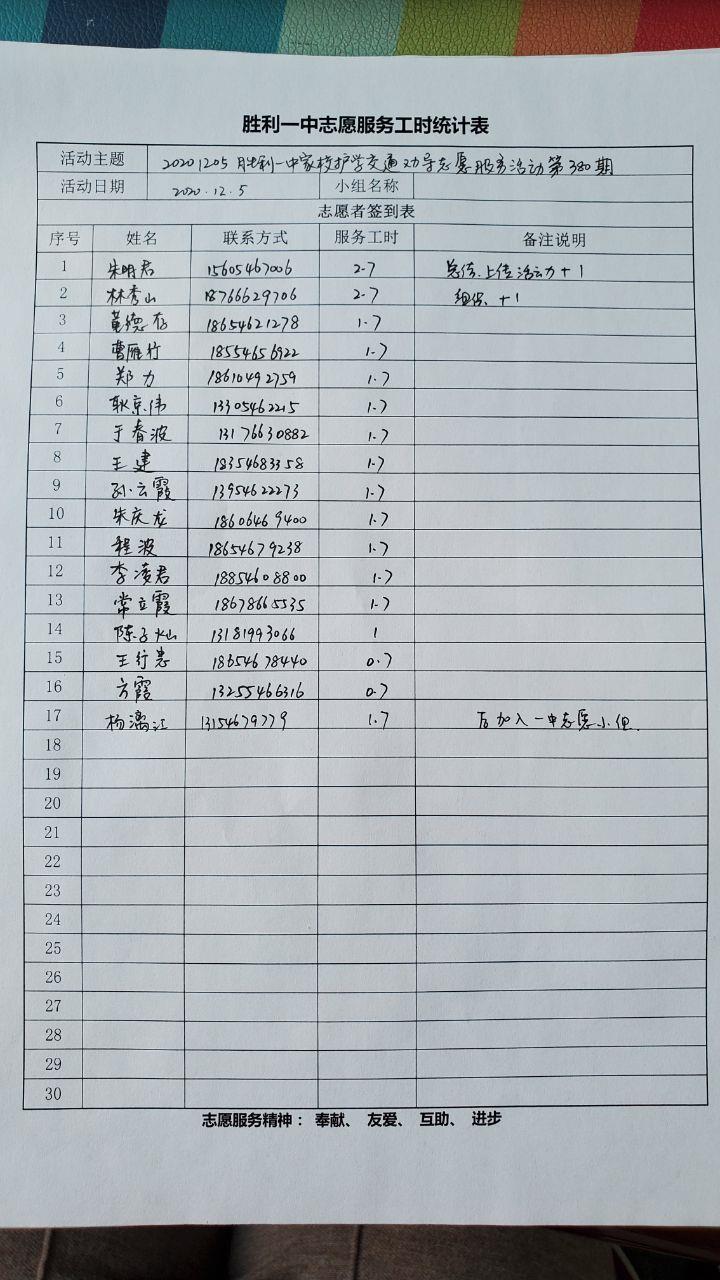 胜利一中志愿服务工时统计表
活动主题 20201205胜利一中家校护学交通劝导志愿服务活动第380期
活动日期 2020.12.5 小组名称
志愿者签到表
序号 姓名 联系方式 服务工时 备注说明
1 朱明君 15605467006 2.7 总结、上传活动 +1
2 林秀山 18766629706 2.7 组织 +1
3 董德存 18654621278 1.7
4 曹雁行 18554656922 1.7
5 郑力 18610492759 1.7
6 耿京伟 13305462215 1.7
7 于春波 13176630882 1.7
8 王建 18354683358 1.7
9 孙云霞 13954622273 1.7
10 朱庆龙 18606469400 1.7
11 程波 18654679238 1.7
12 李凌君 18854608800 1.7
13 常立霞 18678665535 1.7
14 陈子灿 13181993066 1
15 王行志 18654678440 0.7
16 方霞 13255466316 0.7
17 杨漓江 13154679779 1.7 后加入一中志愿小组.
18
19
20
21
22
23
24
25
26
27
28
29
30
志愿服务精神： 奉献、 友爱、 互助、 进步